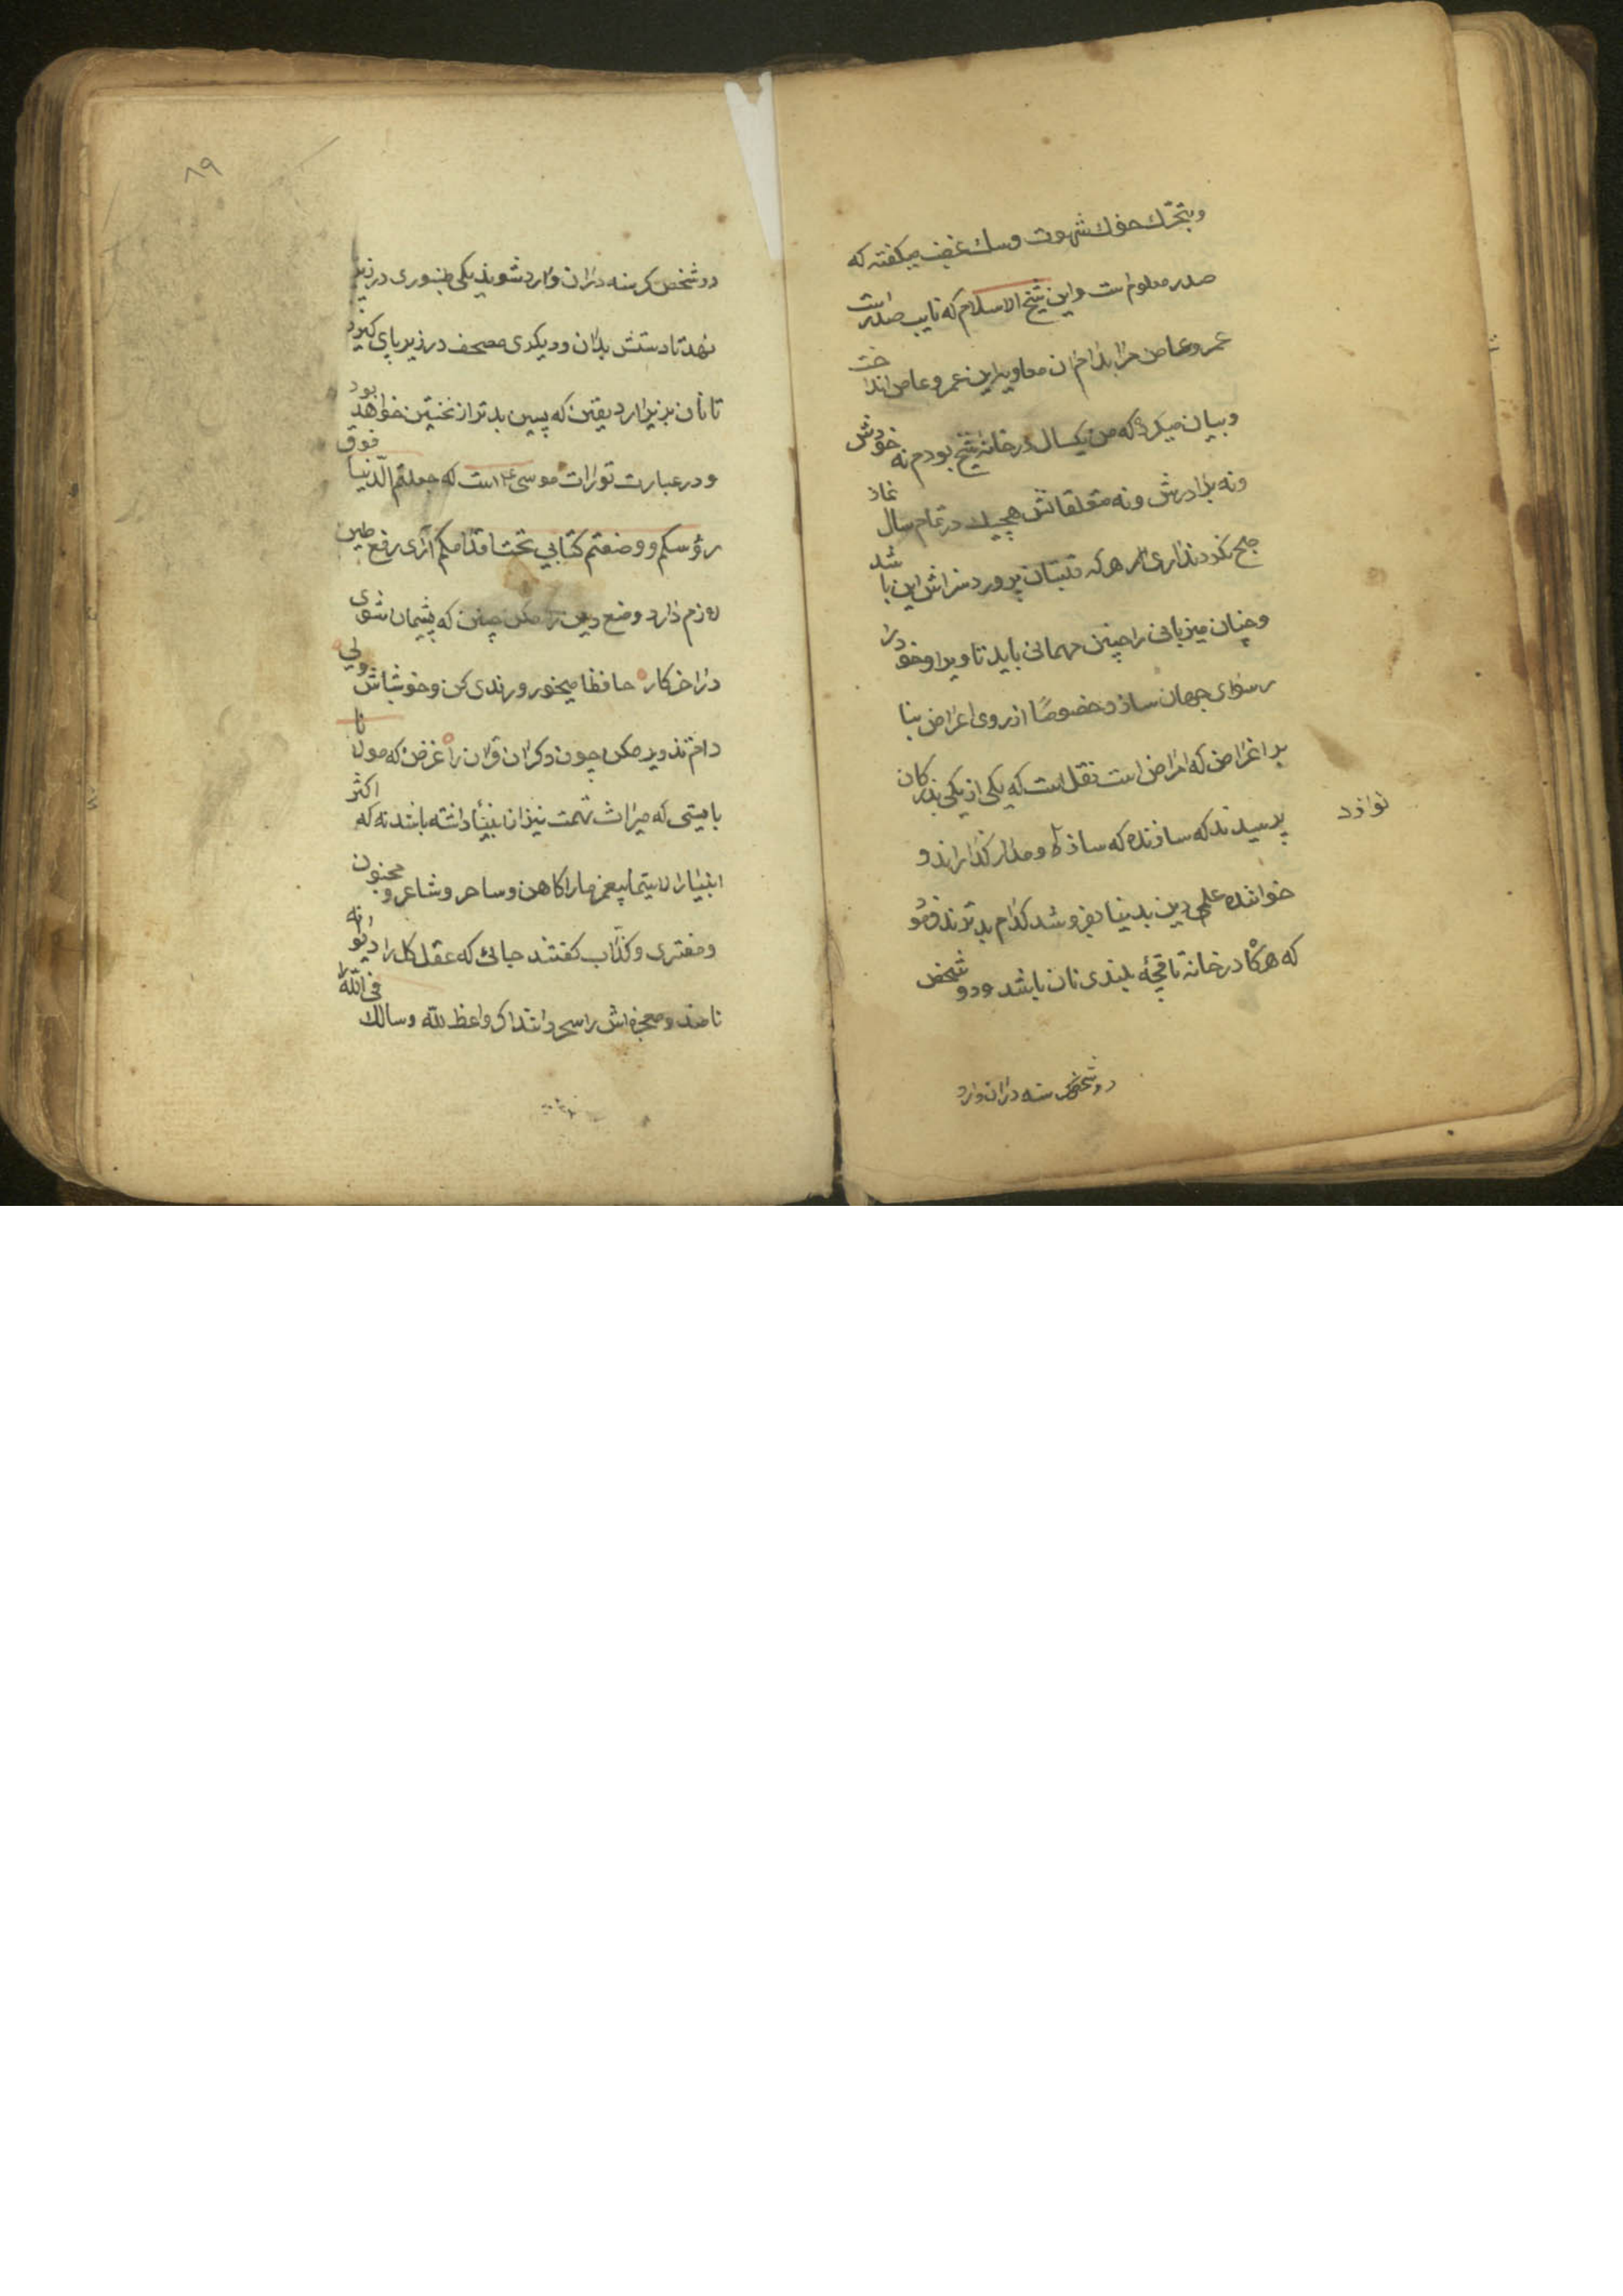 وبتحرّك خوك شهوت وسك غضب میکفته که
صدر معلوم است واین شیخ الاسلام که نایب صدر است
عمروعاص مرا بدام ان معاویه این عمروعاص انداخت
وبیان میکرد که من یکسال در خانه شیخ بودم نه خودش
ونه برادرش ونه متعلقانش هیچیك در تمام سال نماز
صبح نکردند اری هر که قلتبان پرورد سزاش این باشد
وچنان میزبانی را چنین مهمانی باید تا ویرا وخود را
رسوای جهان سازد خصوصًا از روی اغراض بنا
بر اغراض که امراض است نقل است که یکی از یکی بزرکان
پرسیدند که سازنده که ساز و مدار کذراند و
خواننده علمی دین بدنیا بفروشد کدام بدترند فرمو
که هرکا در خانه تاقچهٔ بلندی نان باشد ودو شخص
نوا زد
دو شخص کرسنه دران وارد
۸۹
دو شخص کرسنه دران وارد شوند یکی طنبوری در زیر
نهد تا دستش بدان ودیکری مصحف در زیر پای کیرد
تا نان بزیر ارد یقین که پسین بدتر از نخستین خواهد بود
ودر عبارت تورات موسی ع است که جعلتم الدنیا فوق
رؤسکم ووضعتم کتابی تحت اقدامکم آری رفع طین
لازم دارد وضع دین را مکن چنین که پشیمان شوی
در اخر کار حافظا میخور ورندی کن وخوشباش ولی
دام تزویر مکن چون دکران قران را غرض که مولانا
بایستی که میراث تهمت نیز از انبیا داشته باشد نه که اکثر
انبیارا لاسیّما پیغمبر مارا کاهن وساحر وشاعر ومجنون
ومفتری وکذّاب کفتند جائی که عقل کل را دیوانه
نامند ومعجزه اش را سحر دانند اک واعظ للّه وسالك فی اللّه را